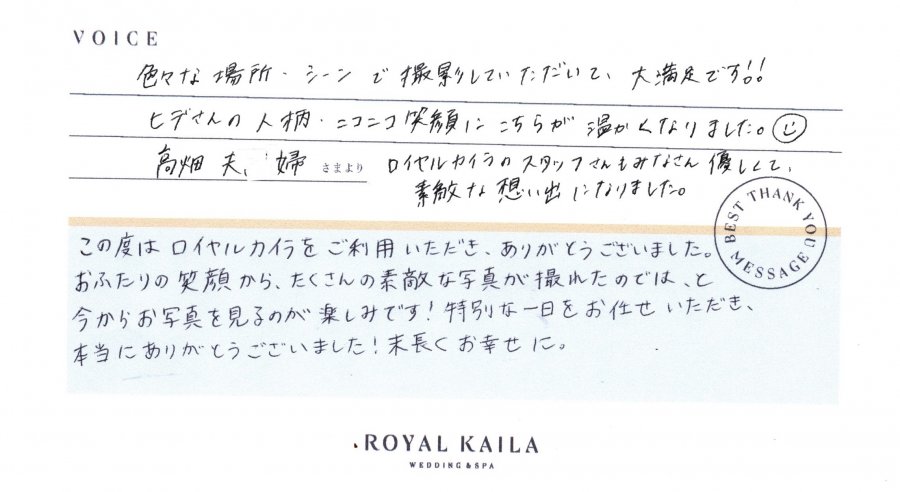 VOICE
色々な場所・シーンで撮影していただいて、大満足です!!
ヒデさんの人柄・ニコニコ笑顔にこちらが温かくなりました。
高畑 夫婦 さまより ロイヤルカイラのスタッフさんもみなさん優しくて、
素敵な想い出になりました。
BEST THANK YOU MESSAGE
この度はロイヤルカイラをご利用いただき、ありがとうございました。
おふたりの笑顔から、たくさんの素敵な写真が撮れたのでは、と
今からお写真を見るのが楽しみです!特別な一日をお任せいただき、
本当にありがとうございました!末長くお幸せに。
ROYAL KAILA
WEDDING & SPA